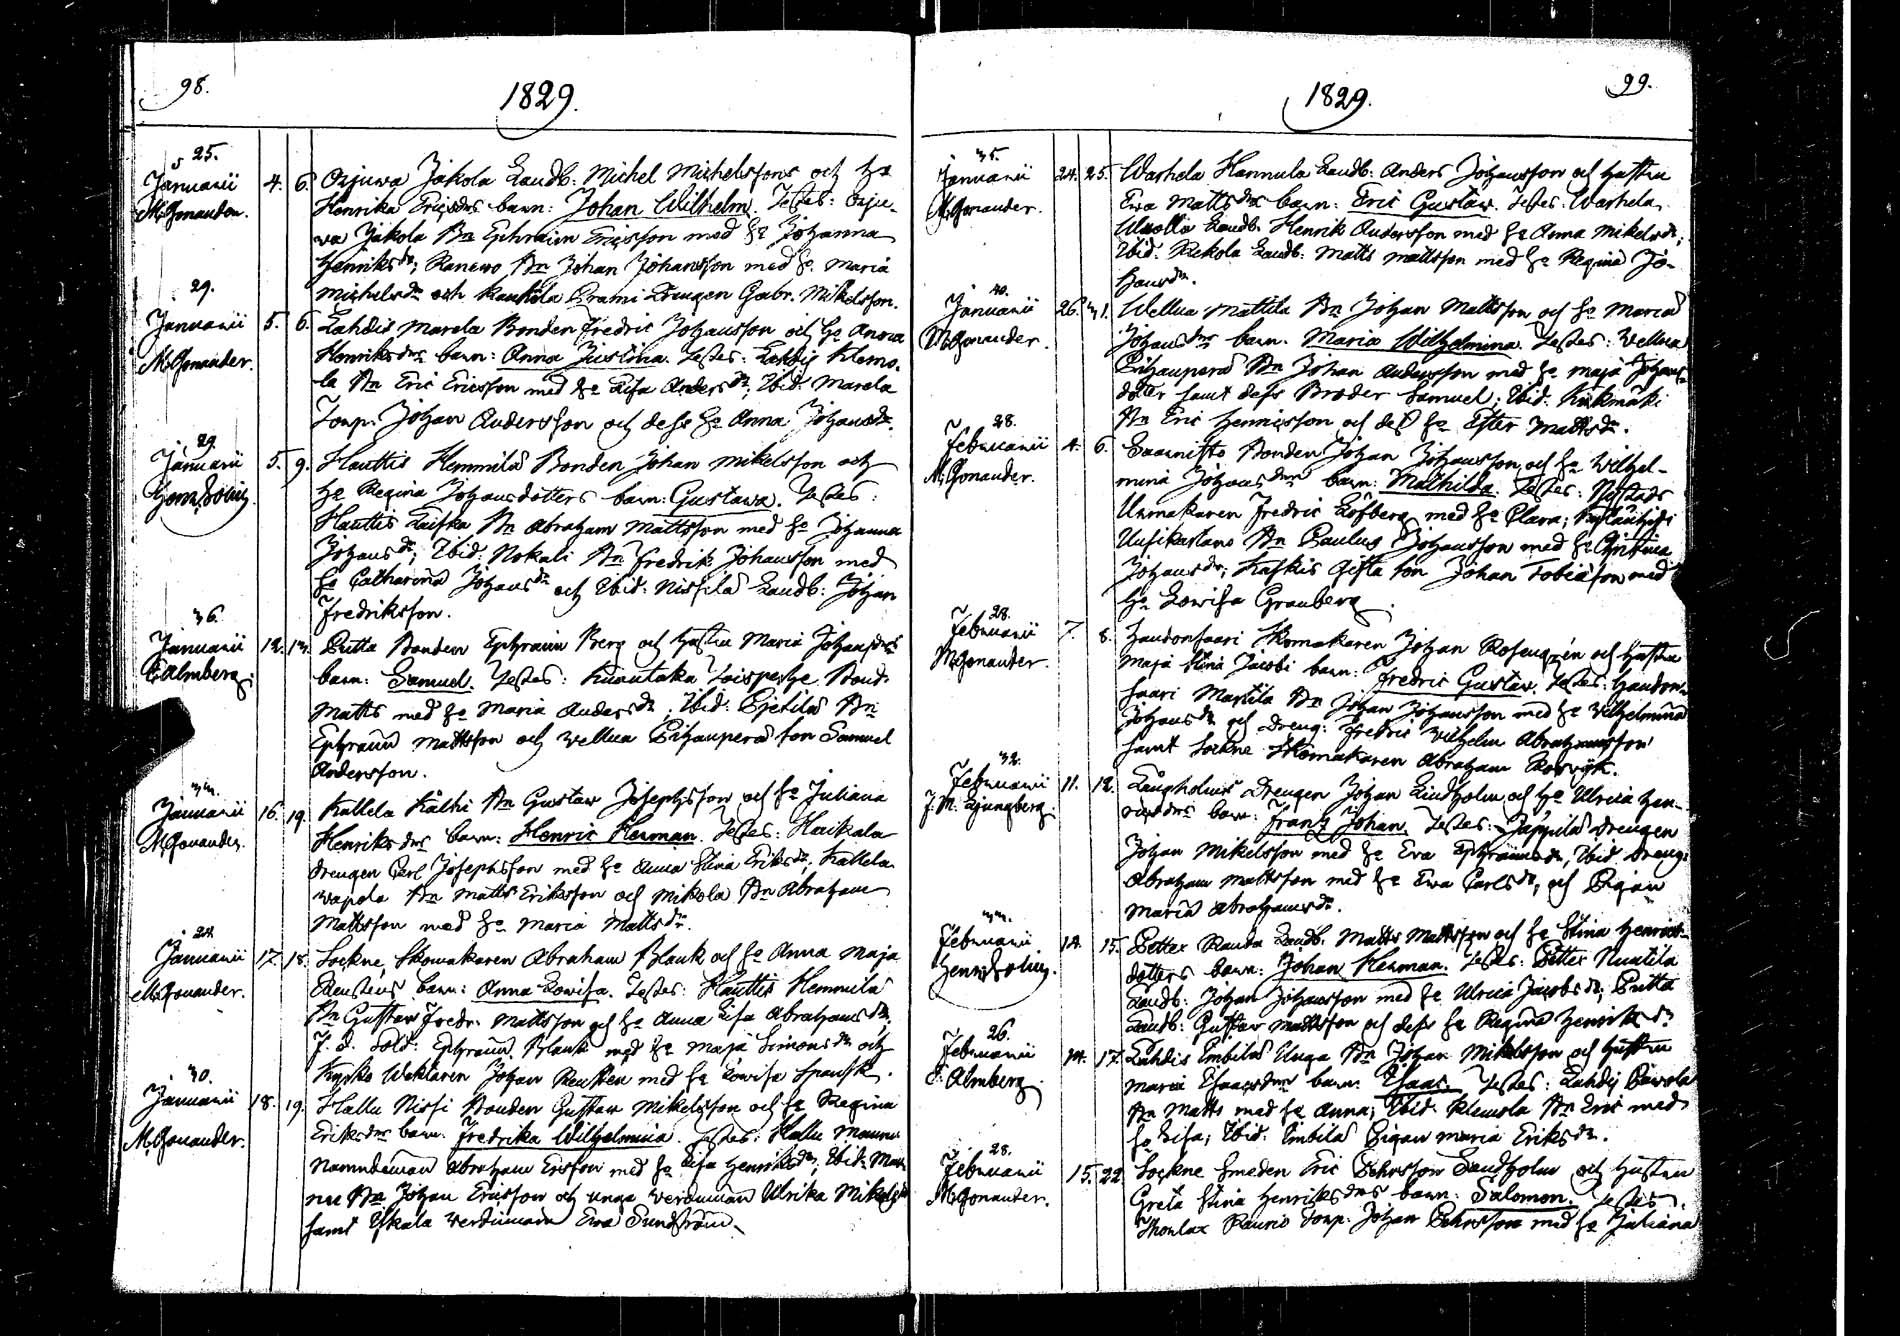 98.
1829.
25.
Januarii 4. 6. Orjuwa Jakola Landb: Michel Michelssons och H:s
M. Gonander. Henrika Ericsdrs barn: Johan Wilhelm. Testes: Orju-
wa Jakola Bn Ephraim Ericsson med h: Johanna
Henriksdr; Ranewo Bn Johan Johansson med h: Maria
Michelsdr och Kaukola Drengen Gabr. Mikelsson.
29.
Januarii 5. 6. Lahdis Marela Bonden Fredric Johansson och H: Anna
M. Gonander. Henriksdrs barn: Anna Justina. Testes: Lahdis Klemo-
la Bn Eric Ericsson med h: Lisa Andersdr, Ibid: Marela
Torp. Johan Andersson och dess h: Anna Johansdr.
29.
Januarii 5. 9. Hauttis Hemmilä Bonden Johan Mikelsson och
H: Regina Johansdotters barn: Gustawa. Testes:
Hauttis Laiska Bn Abraham Mattsson med h: Johanna
Johansdr; Ibid: Nokali Bn Fredrik Johansson med
h: Catharina Johansdr och Ibid: Nissilä Landb: Johan
Fredriksson.
36.
Januarii 12. 13. Putta Bonden Ephraim Berg och hustru Maria Johansdrs
C. Almberg. barn: Samuel. Testes: Kuiwataka Bond.
Matts med h: Maria Andersdr, Ibid: Bn
Ephraim Mattsson och Wellua Pihanperä son Samuel
Andersson.
33.
Januarii 16. 19. Kallela Kälhi Bn Gustaw Josephsson och h: Juliana
M. Gonander. Henriksdrs barn: Henric Herman. Testes: Haikala
drengen Carl Josephsson med h: Anna Stina Eriksdr, Kallela
wapola Bn Matts Eriksson och Mikola Bn Abraham
Mattsson med h: Maria Mattsdr.
24.
Januarii 17. 18. Sockne Skomakaren Abraham Blank och h: Anna Maja
M. Gonander. barn: Anna Lowisa. Testes: Hauttis Hemmilä
Bn Gustaw Fredr. Mattsson och h: Anna Lisa Abrahamsdr,
f. d. Sold: Ephraim Blank med h: Maja Simonsdr och
Kyrko Wäktaren Johan med h: Lowisa Spansk.
30.
Januarii 18. 19. Hallu Nissi Bonden Gustaw Mikelsson och h: Regina
M. Gonander. Eriksdrs barn: Fredrika Wilhelmina. Testes: Hallu Maunu
Nämndeman Abraham Ersson med h: Lisa Henriksdr, Ibid: Mau-
nu Bn Johan Ericsson och unga Ulrika Mikelsdr
samt Ewa Sundström.
99.
1829.
35.
Januarii 24. 25. Warhela Hannula Landb. Anders Johansson och hustru
M. Gonander. Ewa Mattsdrs barn: Eric Gustaw. Testes: Warhela
Uuolla Landb: Henrik Andersson med h: Anna Mikelsdr;
Ibid. Rekola Landb: Matts Mattsson med h: Regina Jo-
hansdr.
40.
Januarii 26. 31. Wellua Mattila Bn Johan Mattsson och h: Maria
M. Gonander. Johansdrs barn. Maria Wilhelmina. Testes: Wellua
Pihanperä Bn Johan Andersson med h: Maja Johans-
dotter samt dess Broder Samuel; Ibid: Kukmäki
Bn Eric Henricsson och dess h: Ester Mattsdr.
28.
Februarii 4. 6. Saaristo Bonden Johan Johansson och h: Wilhel-
M. Gonander. mina Johansdrs barn: Mathilda. Testes: Nystads
Urmakaren Fredric Löfberg med h: Clara;
Uusikartano Bn Paulus Johansson med h: Christina
Johansdr; Kaskis Gifta son Johan Tobiasson med
h: Lowisa Granberg.
28.
Februarii 7. 8. Haudonsaari Skomakaren Johan Rosengrén och hustru
M. Gonander. Maja Stina Jacobi barn: Fredric Gustaw. Testes: Haudon-
saari Marttila Bn Johan Johansson med h: Wilhelmina
Johansdr och Dreng: Fredric Wilhelm Abrahamsson
samt Sockne Skomakaren Abraham
32.
Februarii 11. 12. Långholms Drengen Johan Lindholm och h: Ulrica Hen-
J. M. Ljungberg. ricsdrs barn: Frans Johan. Testes: Jäppilä drengen
Johan Mikelsson med h: Ewa Ephraimsdr, Ibid. Dreng:
Abraham Mattsson med h: Ewa Carlsdr, och Pigan
Maria Abrahamsdr.
33.
Februarii 14. 15. Better Rauda Landb. Matts Mattsson och h: Stina Henriks-
dotters barn: Johan Herman. Testes: Better Nuatila
Landb: Johan Johansson med h: Ulrica Jacobsdr; Putta
Landb: Gustaw Mattsson och dess h: Regina Henriksdr
26.
Februarii 14. 17. Lahdis Embila Unga Bn Johan Mikelsson och hustru
C. Almberg. Maria Esaacsdrs barn: Esaac. Testes: Lahdis Pawola
Bn Matts med h: Anna; Ibid. Klemola Bn Eric med
h: Lisa; Ibid: Embila Pigan Maria Eriksdr.
28.
Februarii 15. 22. Sockne Smeden Eric Pehrsson Sandholm och hustru
M. Gonander. Greta Stina Henriksdrs barn: Salomon. Testes:
Raurio Torp. Johan Pehrsson med h: Juliana